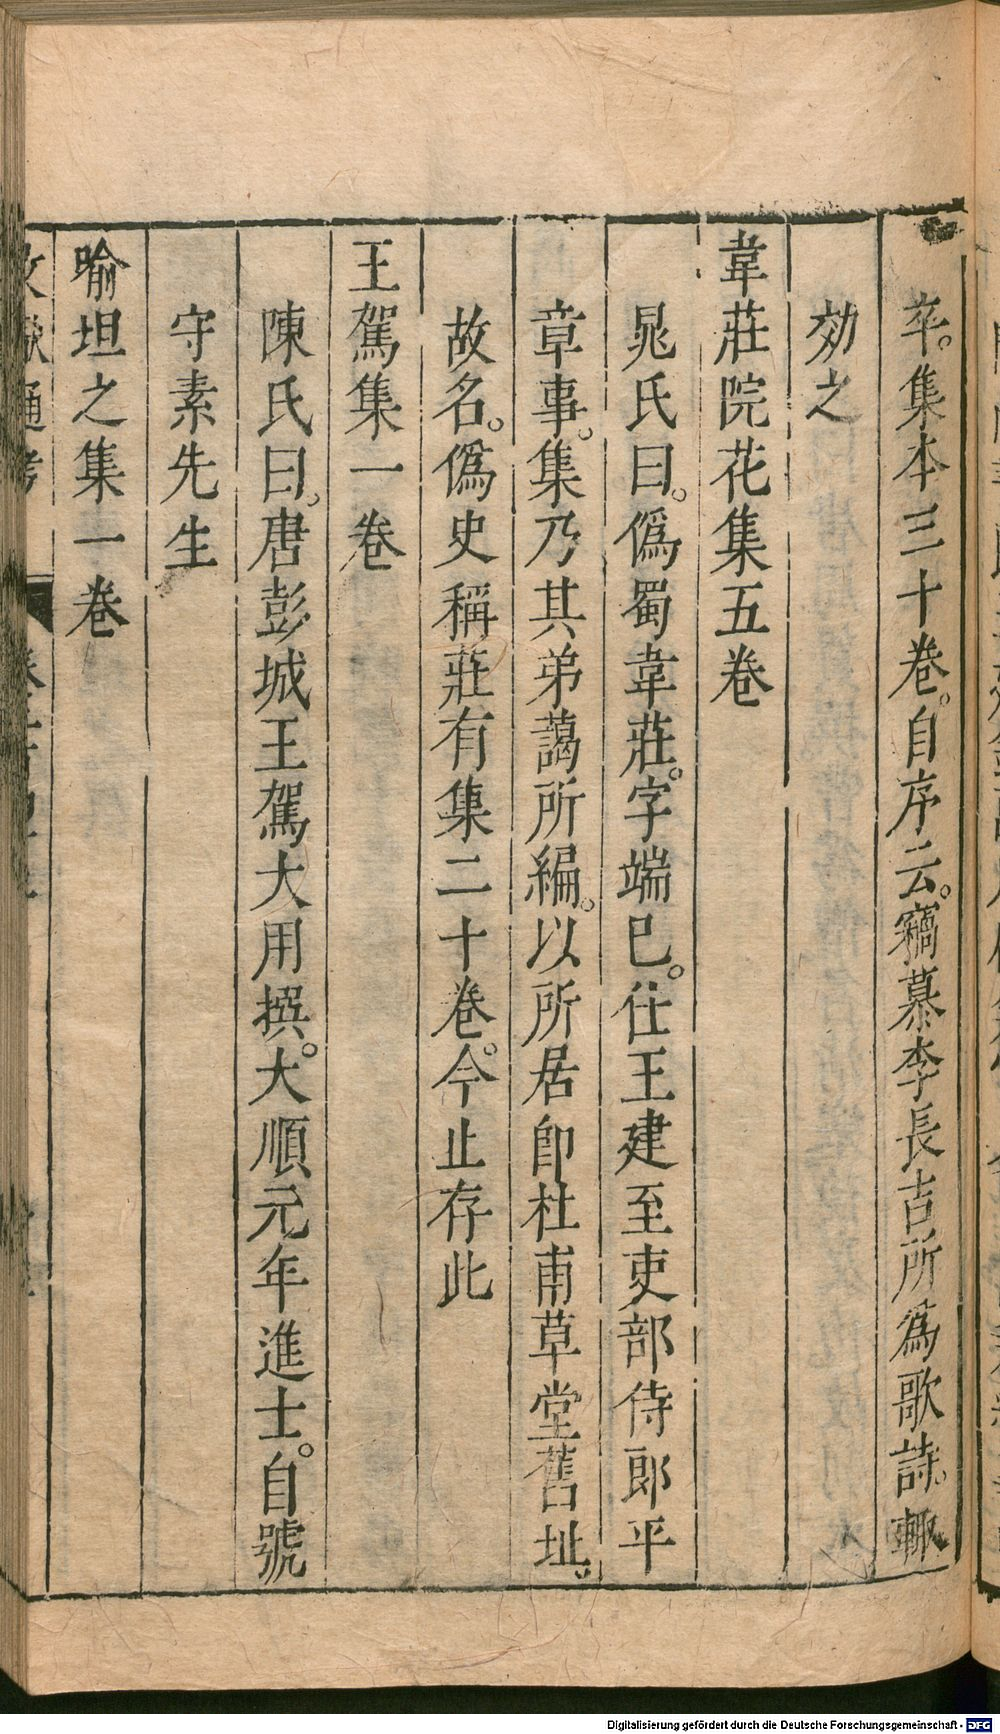 卒。集本三十卷。自序云。竊慕李長吉所爲歌詩。輒
効之
韋莊院花集五卷
晁氏曰。僞蜀韋莊。字端巳。仕王建至吏部侍郎平
章事。集乃其弟藹所編。以所居卽杜甫草堂舊址。
故名。僞史稱莊有集二十卷。今止存此
王駕集一卷
陳氏曰。唐彭城王駕大用撰。大順元年進士。自號
守素先生
喻坦之集一卷
文獻通考
Digitalisierung gefördert durch die Deutsche Forschungsgemeinschaft - DFG